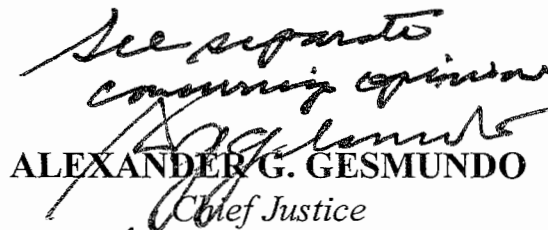 See separate
concurring opinion
ALEXANDER G. GESMUNDO
Chief Justice